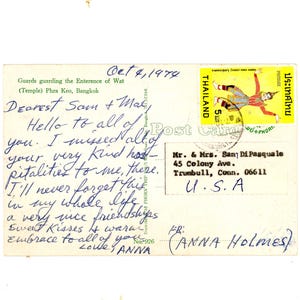 Oct 4, 1974
Guards guarding the Enterence of Wat
(Temple) Phra Keo, Bangkok
Dearest Sam & Mae,
Hello to all of
you. I missed all of
your very Kind hos-
pitalities to me, there.
I'll never forget this
in my whole life
a very nice friendships
Sweet Kisses & warm
embrace to all of you.
Love, ANNA
Post Card
ประเทศไทย
THAILAND
5
Mr. & Mrs. Sam DiPasquale
45 Colony Ave.
Trumbull, Conn. 06611
U.S.A
FR:
(ANNA HOLMES)